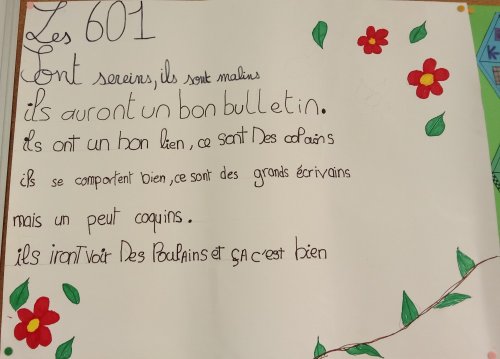 Les 601
Sont sereins, ils sont malins
ils auront un bon bulletin.
ils ont un bon lien, ce sont Des copains
ils se comportent bien, ce sont des grands écrivains
mais un peut coquins.
ils iront voir Des PoulAins et ÇA c'est bien